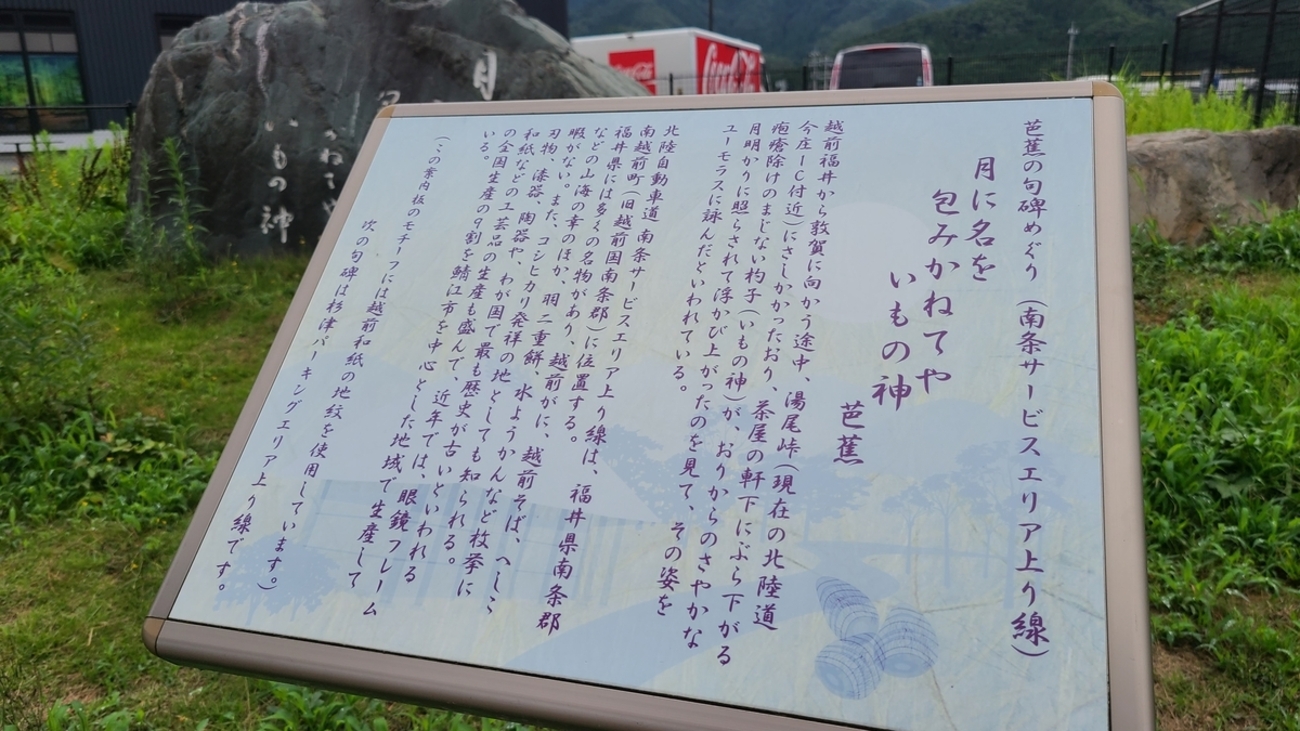 芭蕉の句碑めぐり（南条サービスエリア上り線）
月に名を
包みかねてや
いもの神
芭蕉
越前福井から敦賀に向かう途中、湯尾峠（現在の北陸道
今庄IC付近）にさしかかったおり、茶屋の軒下にぶら下がる
疱瘡除けのまじない杓子（いもの神）が、おりからのさやかな
月明かりに照らされて浮かび上がったのを見て、その姿を
ユーモラスに詠んだといわれている。
北陸自動車道 南条サービスエリア上り線は、福井県南条郡
南越前町（旧越前国南条郡）に位置する。
福井県には多くの名物があり、越前がに、越前そば、へしこ
などの山海の幸のほか、羽二重餅、水ようかんなど枚挙に
暇がない。また、コシヒカリ発祥の地としても知られる。
刃物、漆器、陶器や、わが国で最も歴史が古いといわれる
和紙などの工芸品の生産も盛んで、近年では、眼鏡フレーム
の全国生産の9割を鯖江市を中心とした地域で生産して
いる。
（この案内板のモチーフには越前和紙の地紋を使用しています。）
次の句碑は杉津パーキングエリア上り線です。
月
かねてや
いもの神
Coca-Cola
Coca-Cola